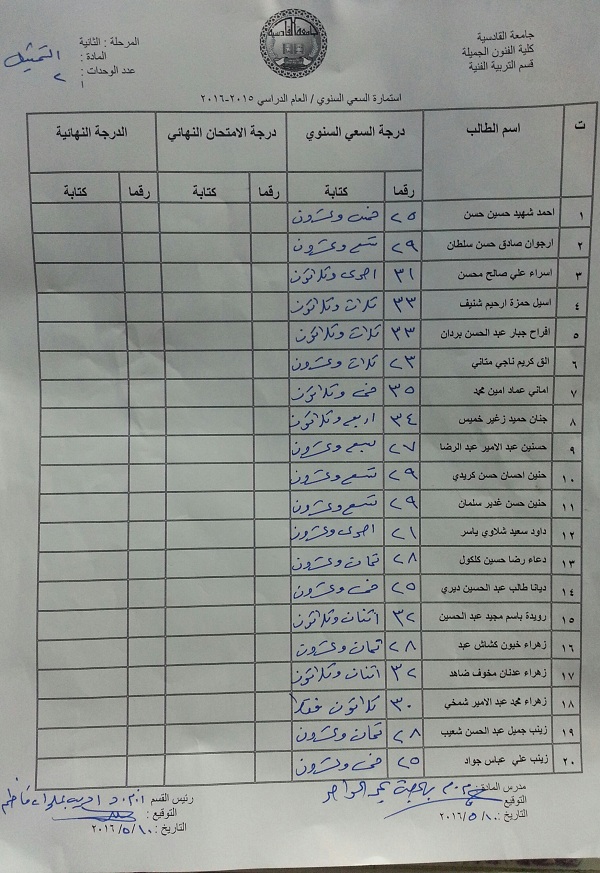 جامعة القادسية
كلية الفنون الجميلة
قسم التربية الفنية
جامعة القادسية
المرحلة : الثانية
المادة : التمثيل
عدد الوحدات : ٢
استمارة السعي السنوي / العام الدراسي ٢٠١٥-٢٠١٦
ت اسم الطالب درجة السعي السنوي درجة الامتحان النهائي الدرجة النهائية
رقما كتابة رقما كتابة رقما كتابة
١ احمد شهيد حسين حسن ٢٥ خمس وعشرون
٢ ارجوان صادق حسن سلطان ٢٩ تسع وعشرون
٣ اسراء علي صالح محسن ٣١ احدى وثلاثون
٤ اسيل حمزة ارحيم شنيف ٣٣ ثلاث وثلاثون
٥ افراح جبار عبد الحسن بردان ٣٣ ثلاث وثلاثون
٦ الق كريم ناجي متاني ٢٣ ثلاث وعشرون
٧ اماني عماد امين محمد ٣٥ خمس وثلاثون
٨ جنان حميد زغير خميس ٣٤ اربع وثلاثون
٩ حسنين عبد الامير عبد الرضا ٢٧ سبع وعشرون
١٠ حنين احسان حسن كريدي ٢٩ تسع وعشرون
١١ حنين حسن غدير سلمان ٢٩ تسع وعشرون
١٢ داود سعيد شلاوي ياسر ٢١ احدى وعشرون
١٣ دعاء رضا حسين كلكول ٢٨ ثمان وعشرون
١٤ ديانا طالب عبد الحسين ديري ٢٥ خمس وعشرون
١٥ رويدة باسم مجيد عبد الحسين ٣٢ اثنان وثلاثون
١٦ زهراء خيون كشاش عبد ٢٨ ثمان وعشرون
١٧ زهراء عدنان مخوف ضاهد ٣٢ اثنان وثلاثون
١٨ زهراء محمد عبد الامير شمخي ٣٠ ثلاثون فقط
١٩ زينب جميل عبد الحسن شعيب ٢٨ ثمان وعشرون
٢٠ زينب علي عباس جواد ٢٥ خمس وعشرون
مدرس المادة : م.م بهجة عبد الواحد
التوقيع :
التاريخ : ٢٠١٦/٥/١٠
رئيس القسم ا.م.د
التوقيع :
التاريخ : ٢٠١٦/٥/١٠